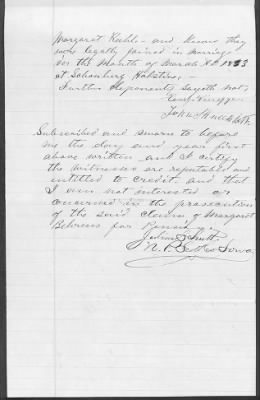 Margaret Kuhl - and know they
were legally joined in marriage
on the Month of March AD 1853
at Schonberg Holstein, -
Further deponents sayeth not,
John
Subscribed and sworn to before
me the day and year first
above written and I certify
the witnesses are reputable and
entitled to credit. and that
I am not interested or
concerned in the prosecution
of the said claim of Margaret
Behrens for Pension
N. P. Iowa